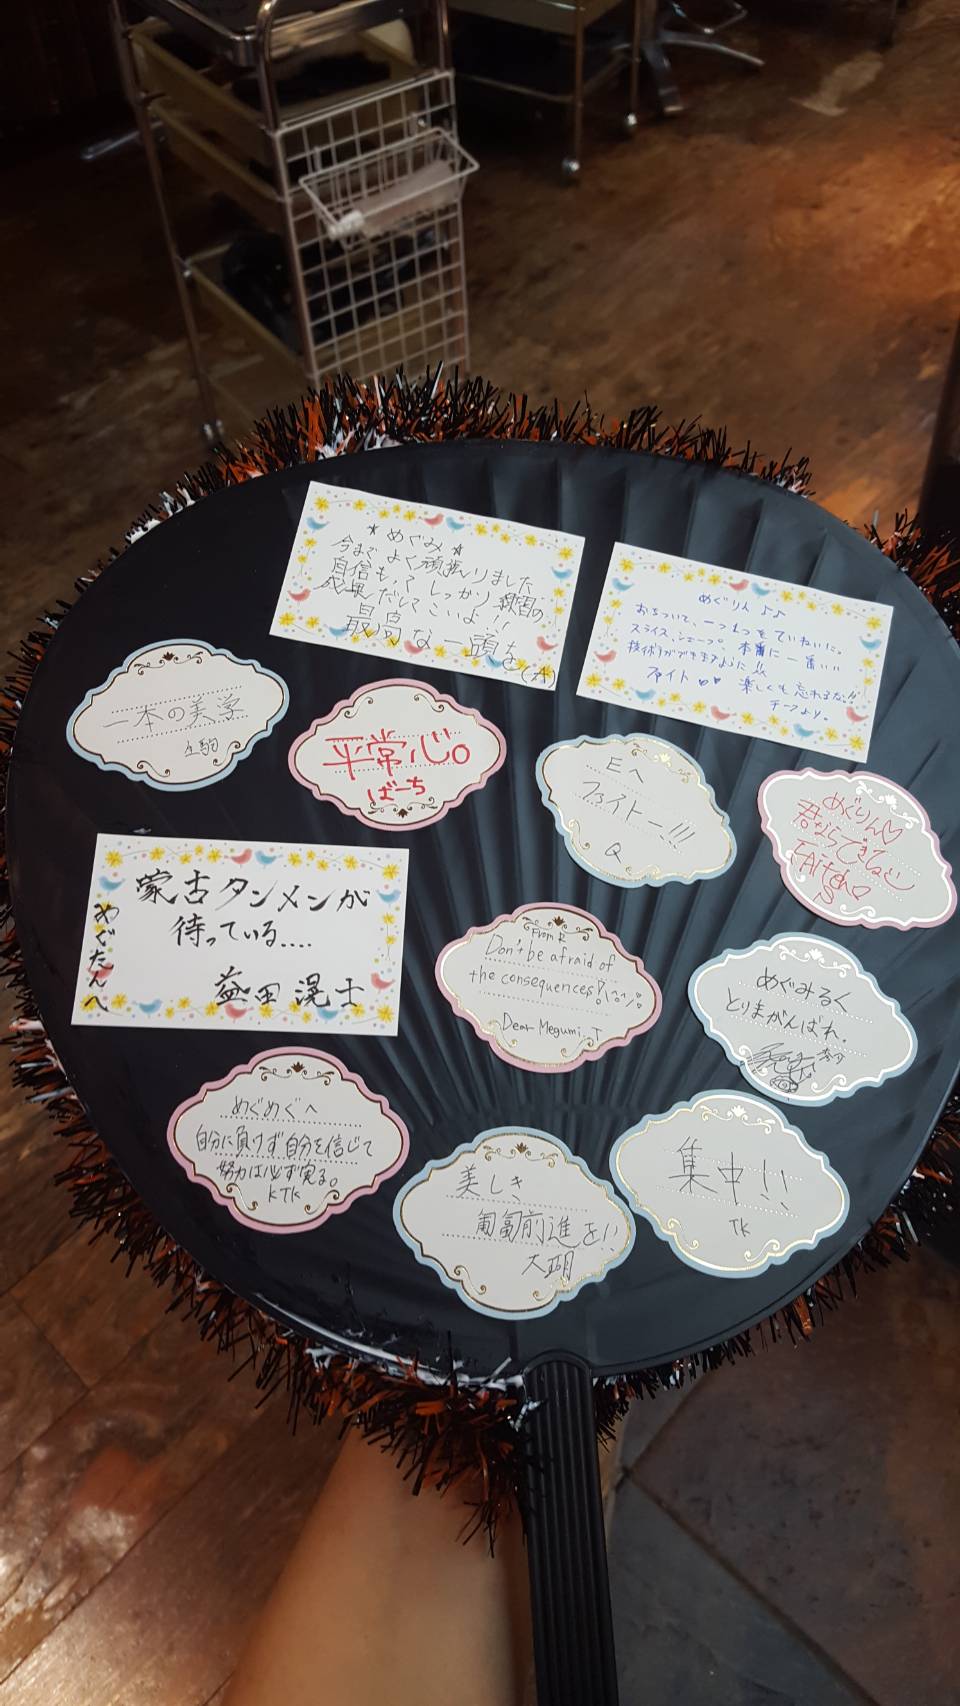 ★めぐみ★
今までよく頑張りました
自信もって しっかり 練習の
成果だしてこいよ!!
最高な一頭を
(A)
めぐりん♪♪
おちついて、一つ1つをていねいに。
スライス、シェープ。本番に一番いい
技術ができますように!!
ファイト♡♡ 楽しくも忘れるな!!
チーフより。
一本の美学
平常心。
ばーち
Eへ
ファイトー!!!
Q
めぐりん♡
君ならできる
S
蒙古タンメンが
待っている....
益田 滉士
めぐたんへ
From K
Don't be afraid of
the consequences!
Dear Megumi.T
めぐみるく
とりまがんばれ。
めぐめぐへ
自分に負けず自分を信じて
努力は必ず実る。
KTK
美しき
匍匐前進を!!
大瑚
集中!!
TK